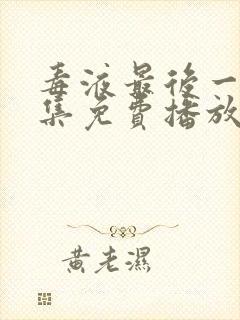 毒液最後一
集免費播放
黃老濕